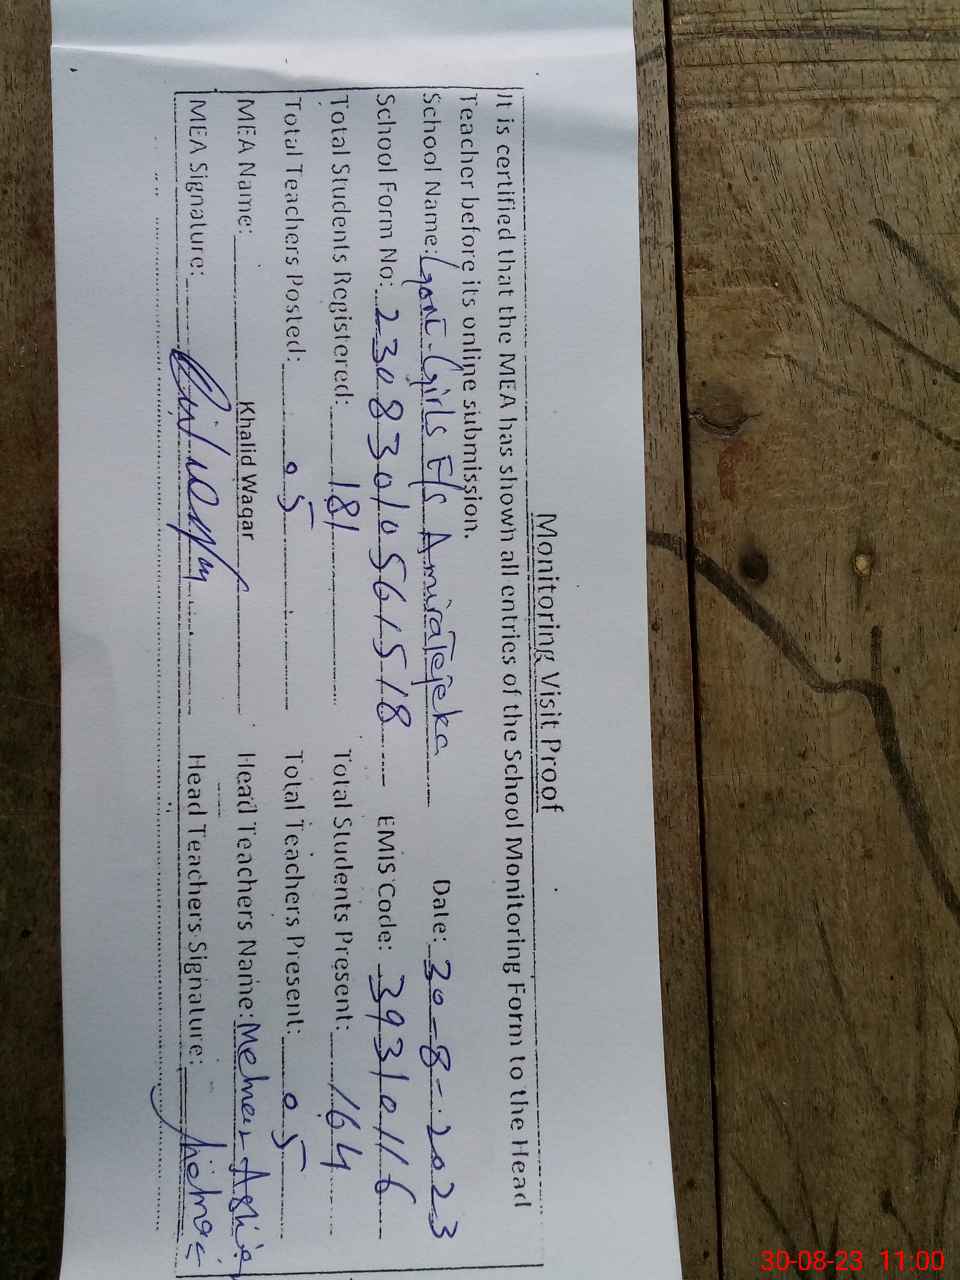 Monitoring Visit Proof
It is certified that the MEA has shown all entries of the School Monitoring Form to the Head
Teacher before its online submission.
School Name: Govt. Girls E/S Date: 30-8-2023
School Form No: 23083010561518 EMIS Code: 39310116
Total Students Registered: 181 Total Students Present: 164
Total Teachers Posted: 05 Total Teachers Present: 05
MEA Name: Khalid Waqar Head Teachers Name:
MEA Signature: Head Teachers Signature:
30-08-23 11:00